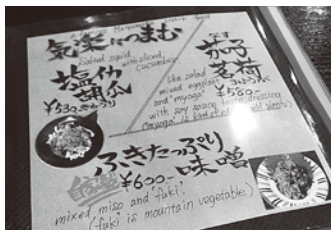 気楽につまむ
Salted squid
with sliced
cucumber
塩イカ
胡瓜
¥530
きゅうり
茄子
茗荷
like salad
mixed eggplant
and "myoga"
¥580-
with soy sauce taste dressing
ふきたっぷり
味噌
自家製
¥600-
mixed miso and "fuki"
(fuki is mountain vegetable)